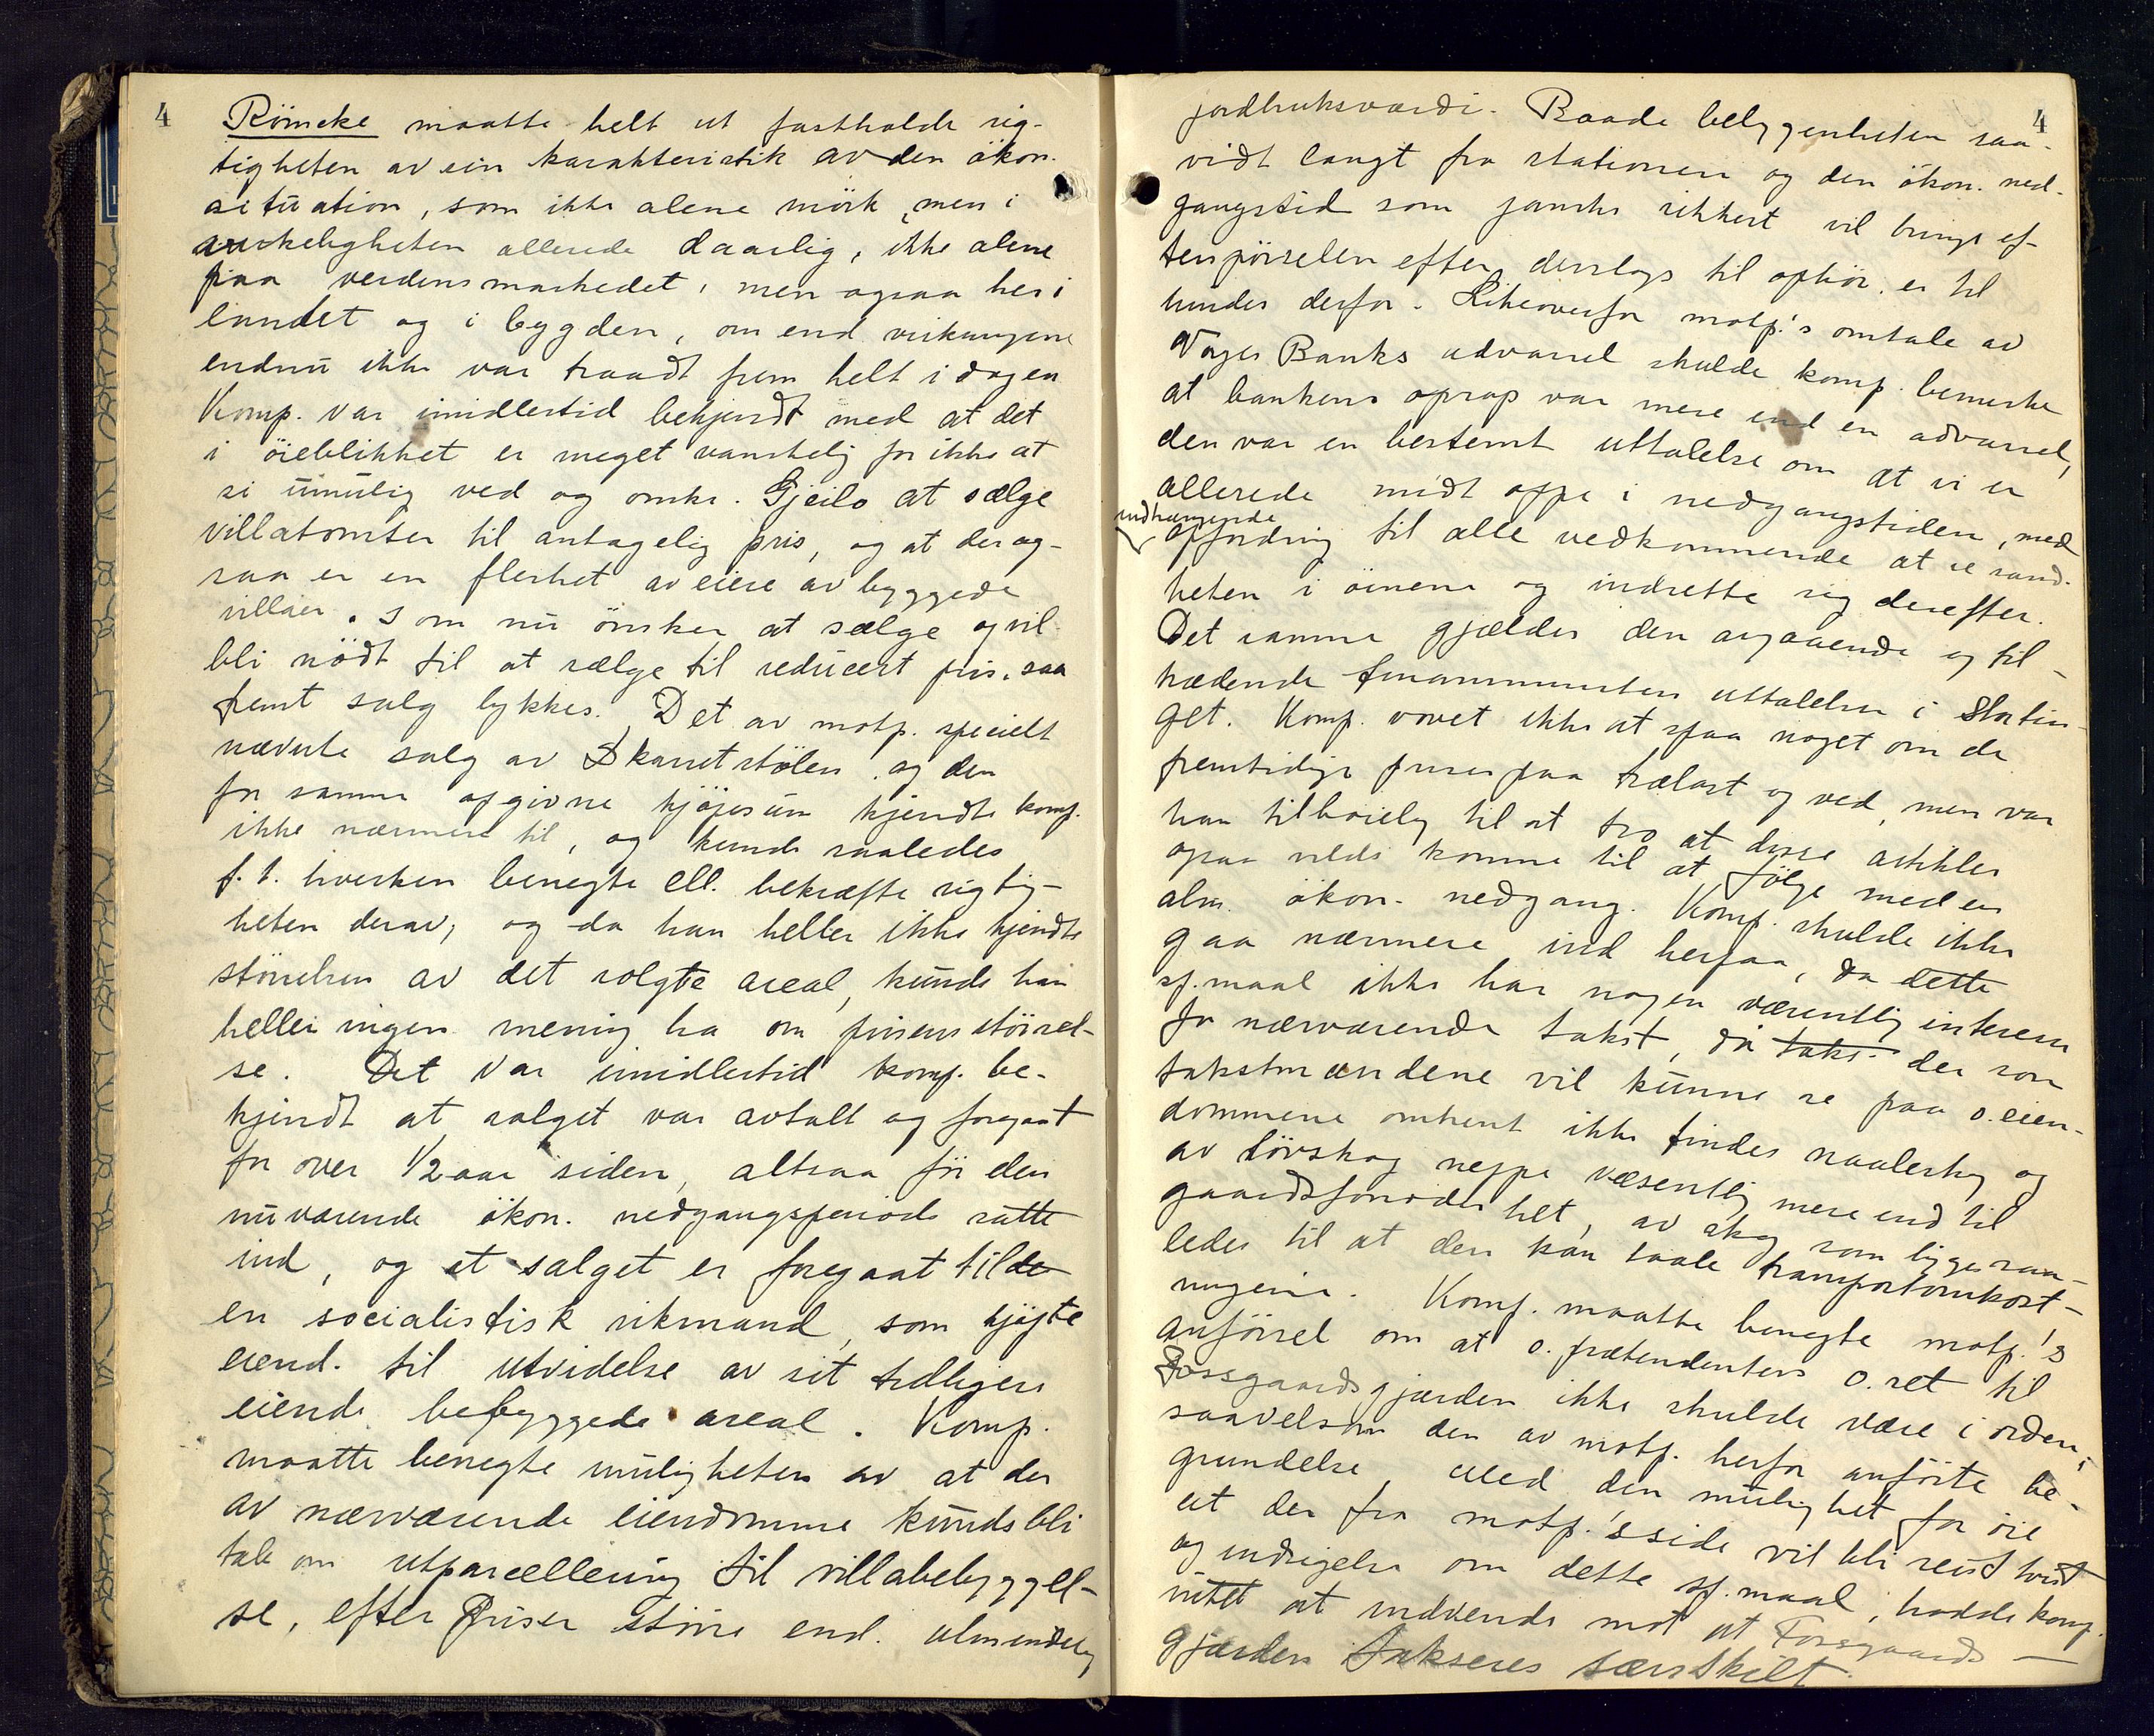 4
Römcke maatte helt ut fastholde rig-
tigheten av sin karakteristik av den ökon.
situation, som ikke alene mörk, men i
virkeligheten allerede daarlig, ikke alene
paa verdensmarkedet, men ogsaa her i
landet og i bygden, om end virkningene
endnu ikke var traadt frem helt i dagen
Komp. var imidlertid bekjendt med at det
i öieblikket er meget vanskelig for ikke at
si umulig ved og omkr. Gjeilo at sælge
villatomter til antagelig pris, og at der og-
saa er en flerhet av eiere av byggede
villaer, som nu önsker at sælge og vil
bli nödt til at sælge til reducert pris, saa
fremt salg lykkes. Det av motp. specielt
nævnte salg av Skarretstölen og den
for samme opgivne kjöpesum kjendte komp.
ikke nærmere til, og kunde saaledes
f.t. hverken benegte ell. bekræfte rigtig-
heten derav, og da han heller ikke kjendte
störrelsen av det solgte areal, kunde han
heller ingen mening ha om prisens störrel-
se. Det var imidlertid komp. be-
kjendt at salget var avtalt og foregaat
for over 1/2 aar siden, altsaa för den
nuværende ökon. nedgangsperiode satte
ind, og at salget er foregaat til de
en socialistisk rikmand, som kjöpte
eiend. til utvidelse av sit tidligere
eiende bebyggede areal. Komp.
maatte benegte muligheten av at der
av nærværende eiendomme kunde bli
tale om utparcellering til villabebyggel-
se, efter priser större end almindelig
4
jordbruksværdi. Baade beliggenheten saa-
vidt langt fra stationen og den ökon. ned-
gangstid som ganske sikkert vil bringe ef-
terspörselen efter denslags til ophör er til
hinder derfor. Likeoverfor motp.'s omtale av
Norges Banks advarsel skulde komp. bemerke
at bankens oprop var mere end en advarsel,
den var en bestemt uttalelse om at vi er
allerede midt oppe i nedgangstiden, med
indtrængende
opfordring til alle vedkommende at se sand-
heten i öinene og indrette sig derefter.
Det samme gjælder den avgaaende og til-
trædende finansministers uttalelser i Stortin-
get. Komp. vovet ikke at spaa noget om de
fremtidige priser paa trælast og ved, men var
han tilböielig til at tro at disse artikler
ogsaa vilde komme til at fölge med en
alm. ökon. nedgang. Komp. skulde ikke
gaa nærmere ind herpaa, da dette
sp.maal ikke har nogen væsentlig interesse
for nærværende takst, da taks- der som
takstmændene vil kunne se paa o. eien-
dommene omtrent ikke findes naaleskog og
av lövskog neppe væsentlig mere end til
gaardsfornödenhet, av skog som ligger saa-
ledes til at den kan taale transportomkost-
ningene. Komp. maatte benegte motp.'s
anförsel om at o. prætendenters o. ret til
Fossgaardsgjærden ikke skulde være i orden,
saavelsom den av motp. herfor anförte be-
grundelse. Med den mulighet for öie
at der fra motp.'s side vil bli reist tvist
og indsigelse om dette sp.maal, hadde komp.
intet at indvende mot at Fossgaards-
gjærden takseres særskilt.